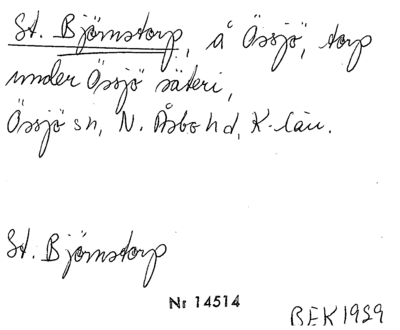 St. Björnstorp, å Össjö, torp
under Össjö säteri,
Össjö sn, N. Åsbo hd, K-län.
St. Björnstorp
Nr 14514
BEK 1989